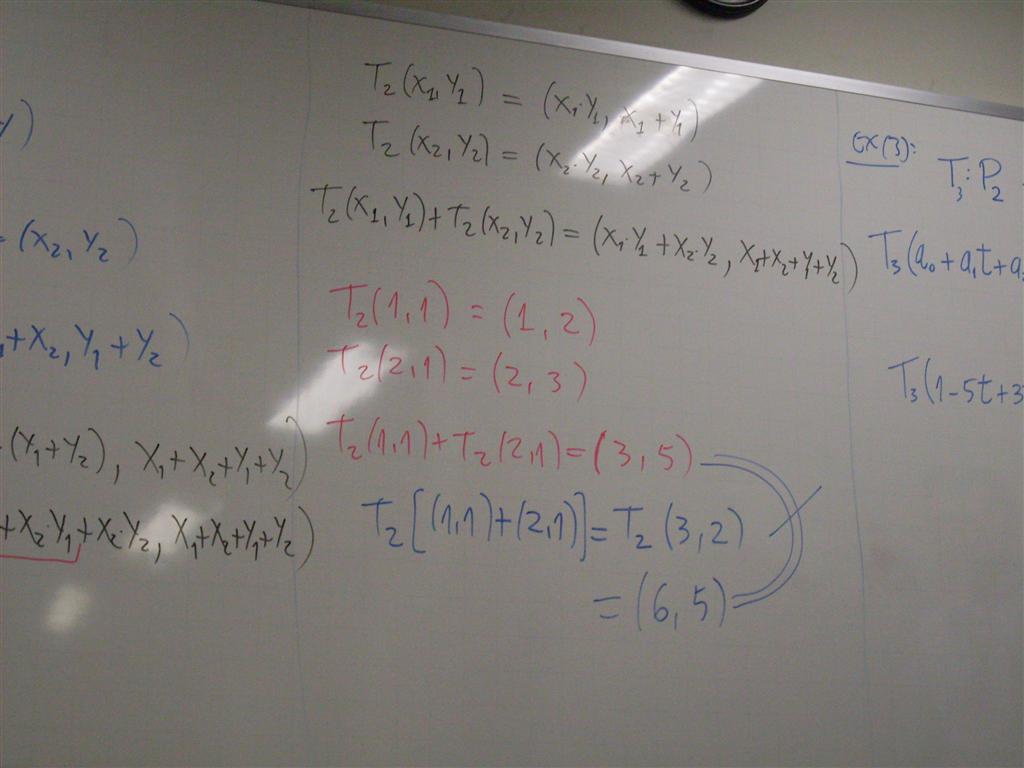 y)
= (x₂, y₂)
₁+x₂, y₁+y₂)
(y₁+y₂), x₁+x₂+y₁+y₂)
+x₂·y₁+x₂·y₂, x₁+x₂+y₁+y₂)
T₂(x₁, y₁) = (x₁·y₁, x₁+y₁)
T₂(x₂, y₂) = (x₂·y₂, x₂+y₂)
T₂(x₁, y₁)+T₂(x₂, y₂) = (x₁·y₁+x₂·y₂, x₁+x₂+y₁+y₂)
T₂(1,1) = (1, 2)
T₂(2,1) = (2, 3)
T₂(1,1)+T₂(2,1)=(3, 5)
T₂[(1,1)+(2,1)]=T₂(3,2)
= (6, 5)
EX(3): T₃:P₂
T₃(a₀+a₁t+a₂
T₃(1-5t+3